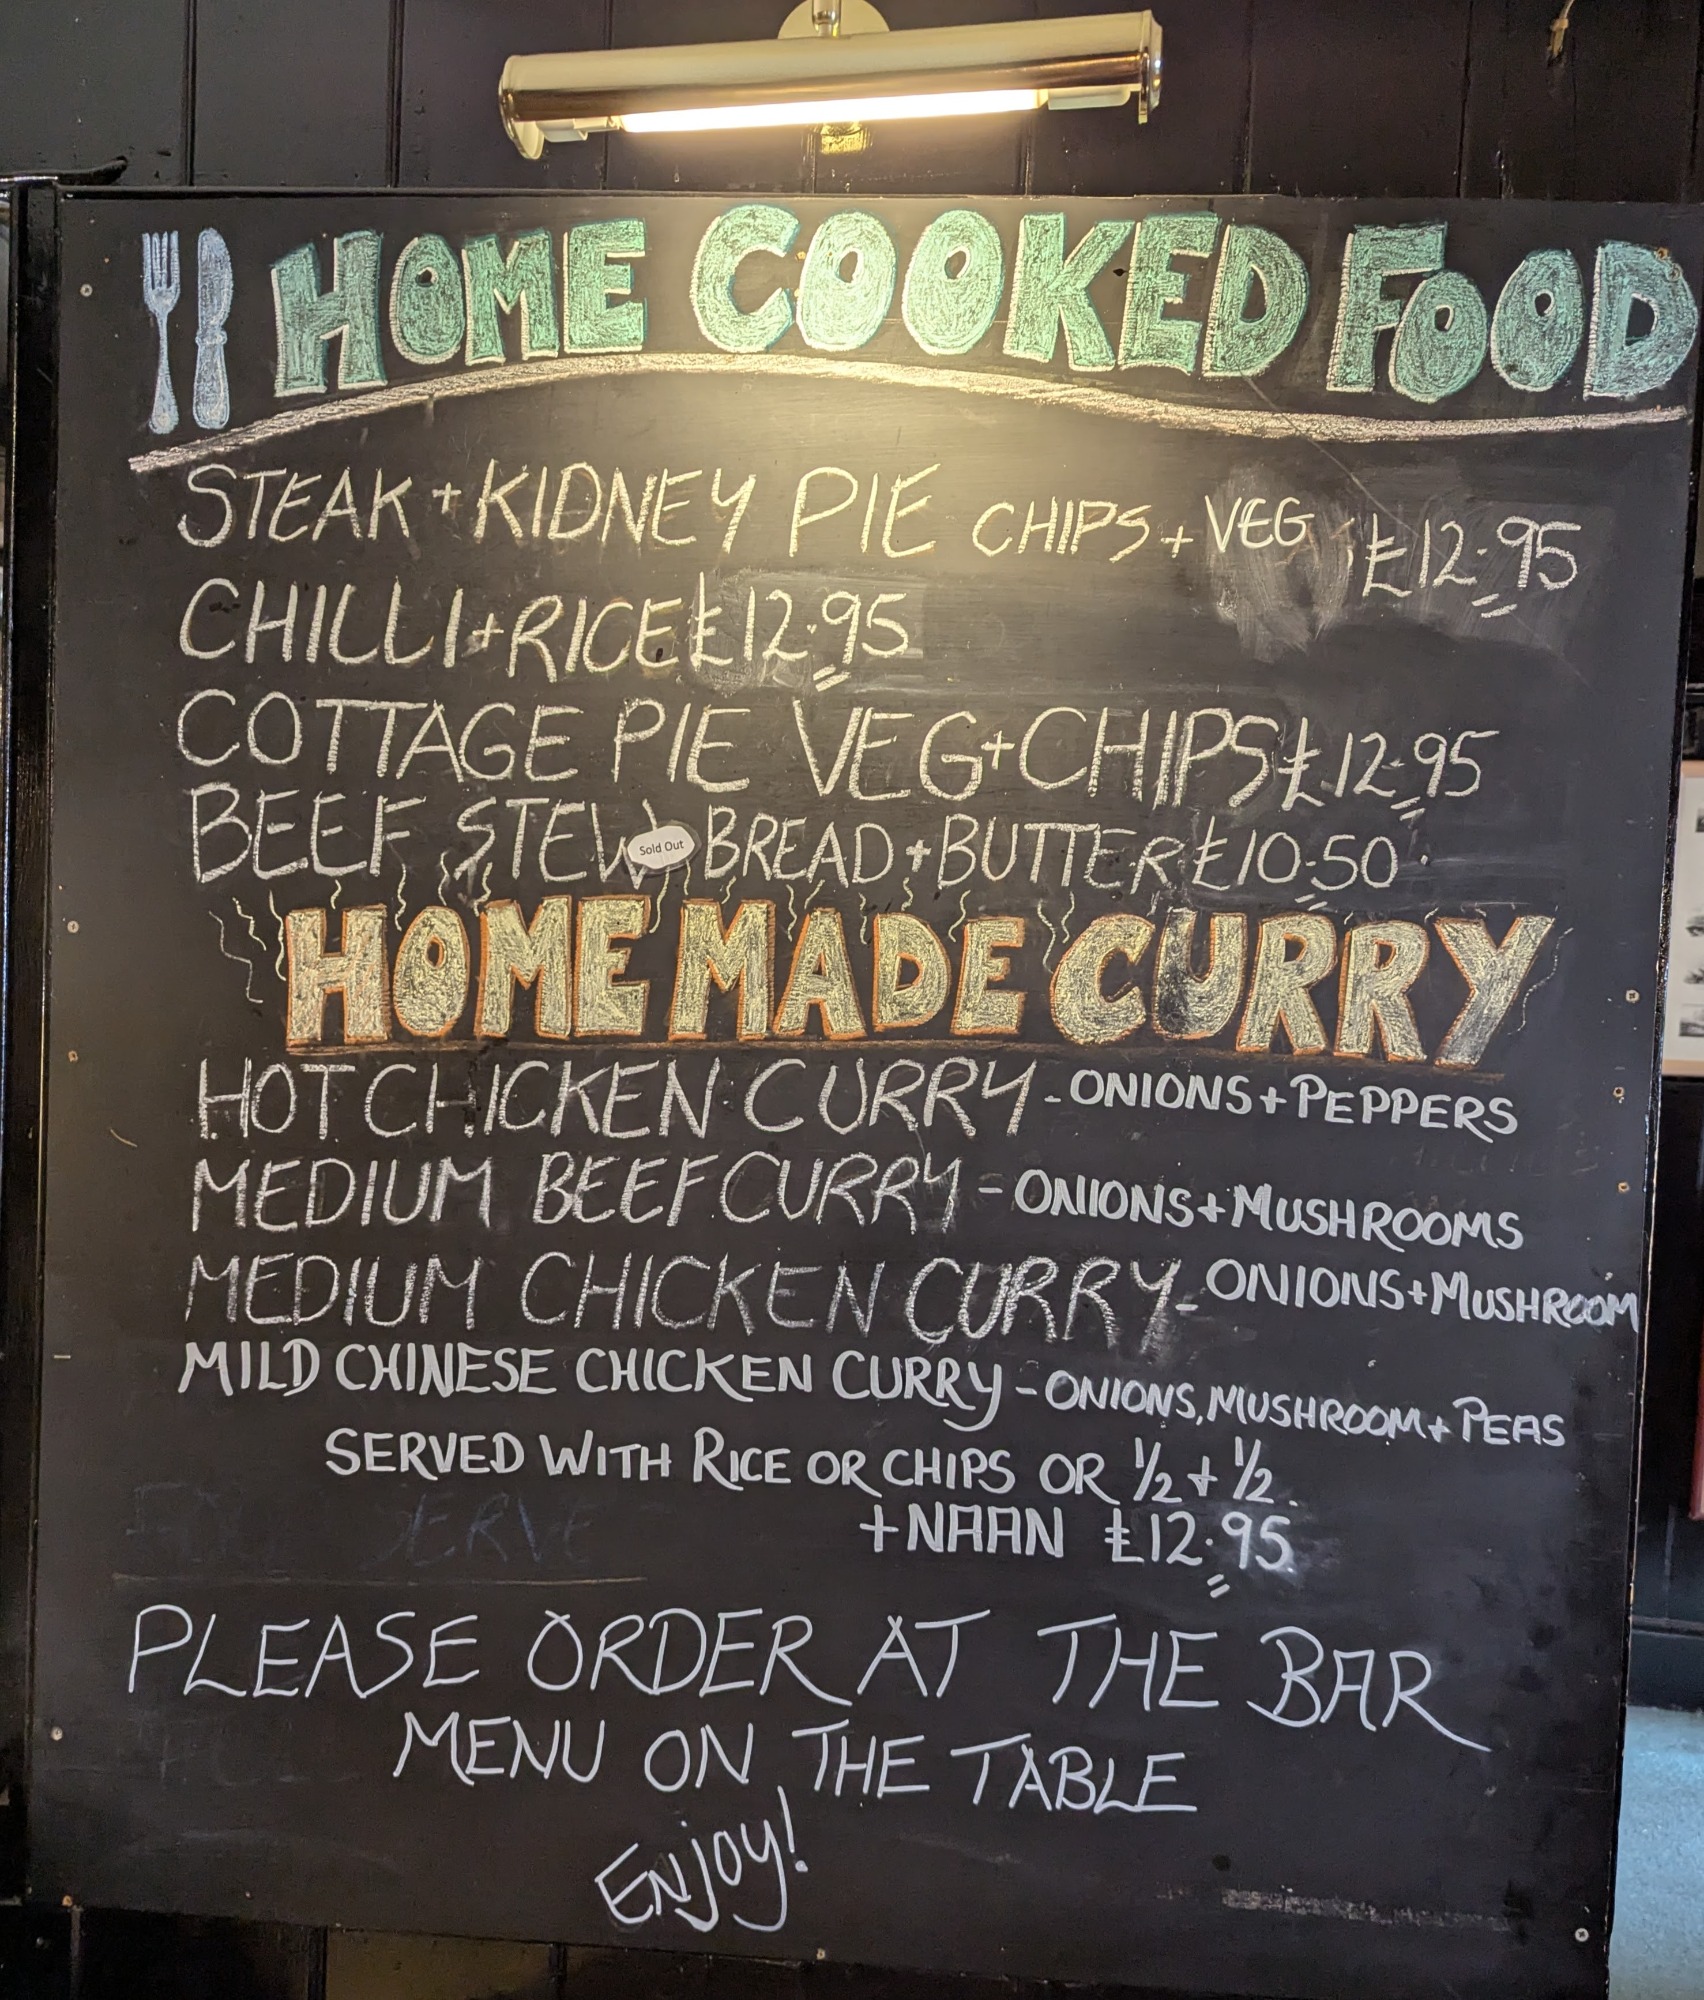 HOME COOKED FOOD
STEAK + KIDNEY PIE CHIPS + VEG £12.95
CHILLI + RICE £12.95
COTTAGE PIE VEG + CHIPS £12.95
BEEF STEW Sold Out BREAD + BUTTER £10.50
HOME MADE CURRY
HOT CHICKEN CURRY - ONIONS + PEPPERS
MEDIUM BEEF CURRY - ONIONS + MUSHROOMS
MEDIUM CHICKEN CURRY - ONIONS + MUSHROOM
MILD CHINESE CHICKEN CURRY - ONIONS, MUSHROOM + PEAS
SERVED WITH RICE OR CHIPS OR ½ + ½.
+ NAAN £12.95
PLEASE ORDER AT THE BAR
MENU ON THE TABLE
ENJOY!